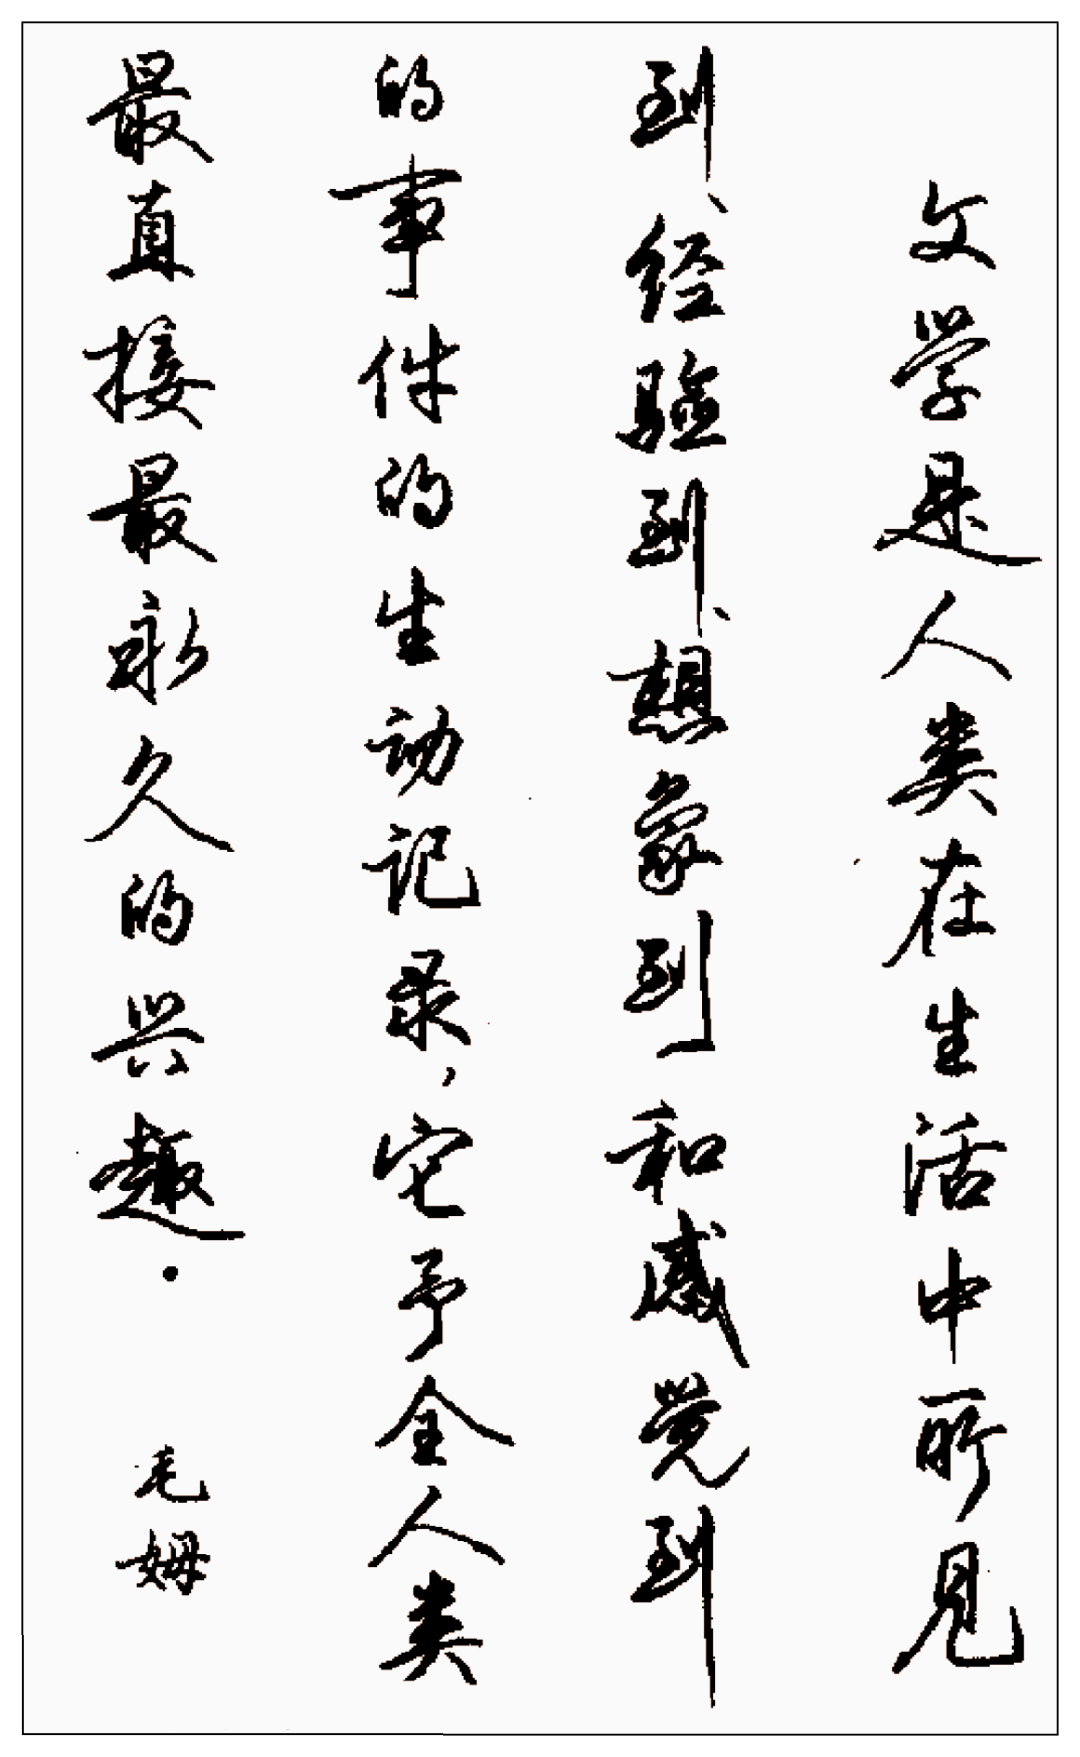 文学是人类在生活中所见
到、经验到、想象到和感觉到
的事件的生动记录，它予全人类
最直接最永久的兴趣.
毛姆